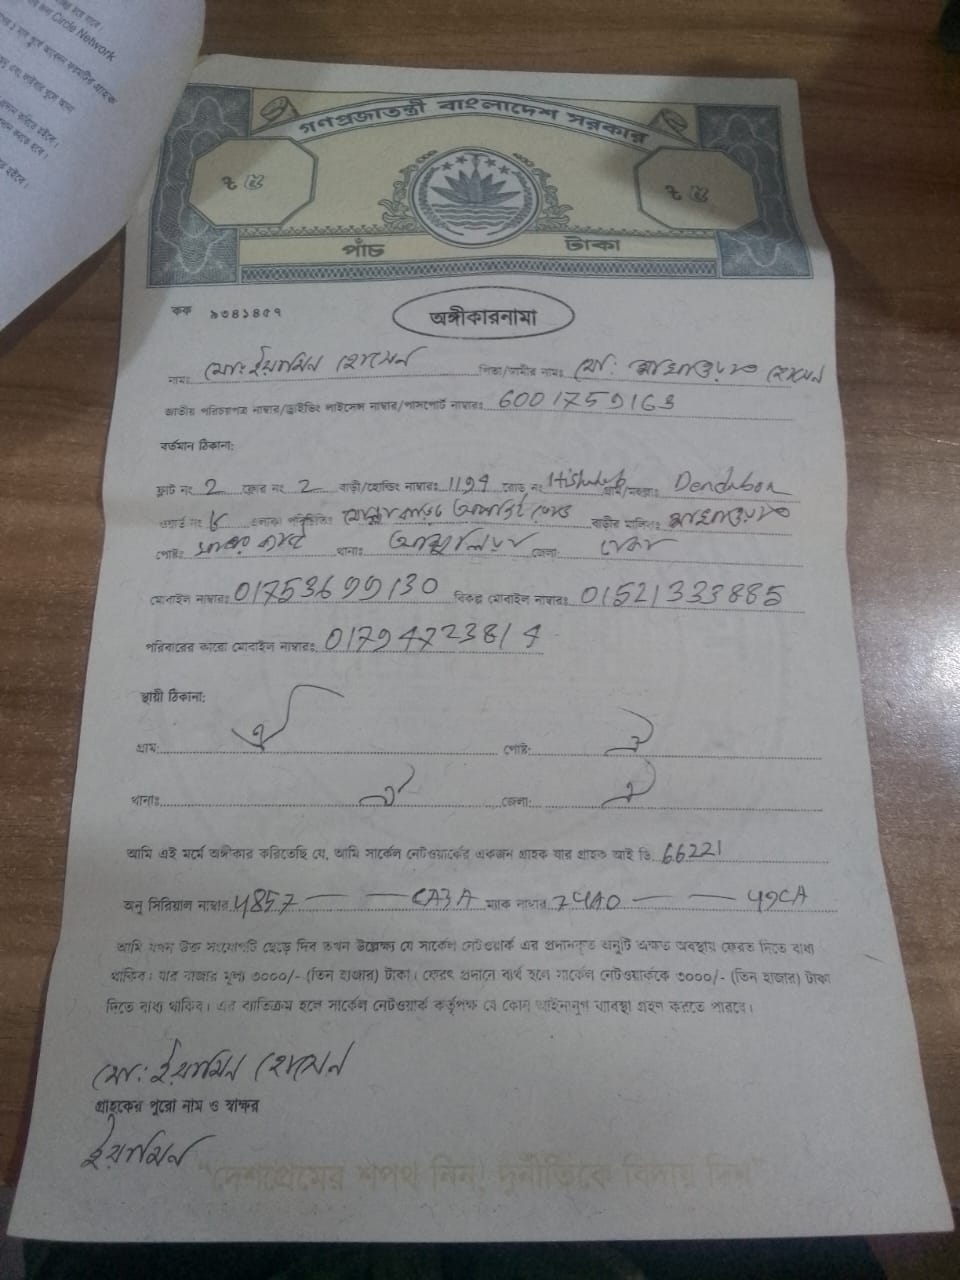 Circle Network
গণপ্রজাতন্ত্রী বাংলাদেশ সরকার
৳ ৫ ৳ ৫
পাঁচ টাকা
কক ৯৩৪১৪৫৭
অঙ্গীকারনামা
নামঃ মোঃ ইয়ামিন হোসেন পিতা/স্বামীর নামঃ মোঃ হোসেন
জাতীয় পরিচয়পত্র নাম্বার/ড্রাইভিং লাইসেন্স নাম্বার/পাসপোর্ট নাম্বারঃ 6001759163
বর্তমান ঠিকানা:
ফ্লাট নং 2 ফ্লোর নং 2 বাড়ী/হোল্ডিং নাম্বারঃ 1194 রোড নং গ্রাম/মহল্লাঃ Dendabor
ওয়ার্ড নং এলাকা পরিচিতিঃ বাড়ীর মালিকঃ
পোষ্টঃ থানাঃ আশুলিয়া জেলা: ঢাকা
মোবাইল নাম্বারঃ 01753699130 বিকল্প মোবাইল নাম্বারঃ 01521333885
পরিবারের কারো মোবাইল নাম্বারঃ 01794723814
স্থায়ী ঠিকানা:
গ্রাম: ঐ পোষ্ট: ঐ
থানাঃ ঐ জেলা: ঐ
আমি এই মর্মে অঙ্গীকার করিতেছি যে, আমি সার্কেল নেটওয়ার্কের একজন গ্রাহক যার গ্রাহক আই ডি 66221
অনু সিরিয়াল নাম্বার 4857 — — CA3A ম্যাক নাম্বার 74A0 — — 49CA
আমি যখন উক্ত সংযোগটি ছেড়ে দিব তখন উল্লেক্ষ্য যে সার্কেল নেটওয়ার্ক এর প্রদানকৃত অনুটি অক্ষত অবস্থায় ফেরত দিতে বাধ্য
থাকিব। যার বাজার মূল্য ৩০০০/- (তিন হাজার) টাকা। ফেরৎ প্রদানে ব্যর্থ হলে সার্কেল নেটওয়ার্ককে ৩০০০/- (তিন হাজার) টাকা
দিতে বাধ্য থাকিব। এর ব্যতিক্রম হলে সার্কেল নেটওয়ার্ক কর্তৃপক্ষ যে কোন আইনানুগ ব্যাবস্থা গ্রহণ করতে পারবে।
মোঃ ইয়ামিন হোসেন
গ্রাহকের পুরো নাম ও স্বাক্ষর
ইয়ামিন
"দেশপ্রেমের শপথ নিন, দুর্নীতিকে বিদায় দিন"